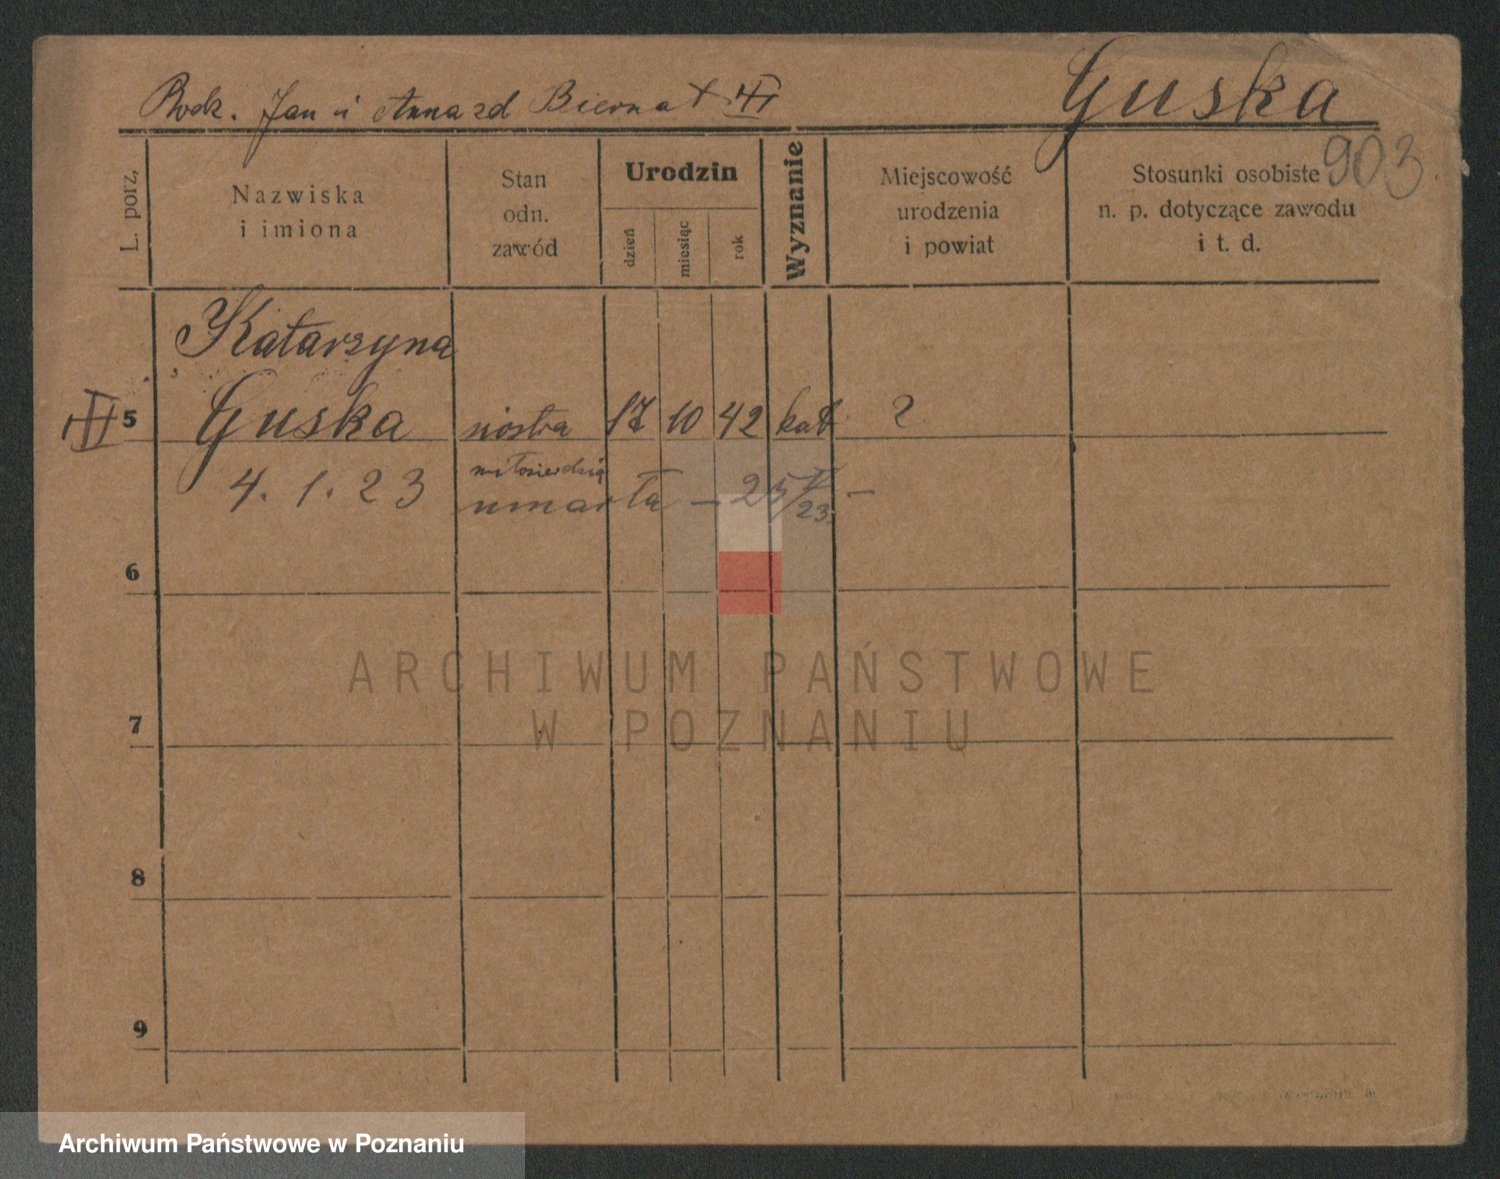 Rodz. Jan i Anna zd Biernat III
Guska
903
L. porz.
Nazwiska
i imiona
Stan
odn.
zawód
Urodzin
dzień
miesiąc
rok
Wyznanie
Miejscowość
urodzenia
i powiat
Stosunki osobiste
n. p. dotyczące zawodu
i t. d.
Katarzyna
III 5 Guska siostra 17 10 42 kat ?
miłosierdzia
4. 1. 23 umarła – 25/23 –
6
ARCHIWUM PAŃSTWOWE
W POZNANIU
7
8
9
Archiwum Państwowe w Poznaniu